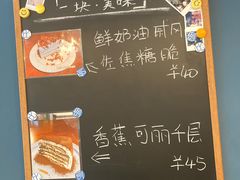 一块·美味
鲜奶油戚风
佐焦糖脆
¥40
香蕉可丽千层
¥45